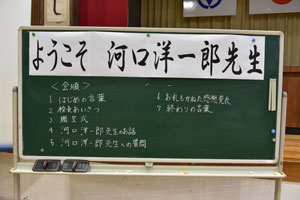 ようこそ 河口洋一郎先生
＜会順＞
1 はじめの言葉
2 校長あいさつ
3 贈呈式
4 河口洋一郎先生のお話
5 河口洋一郎先生への質問
6 お礼もかねた感想発表
7 終わりの言葉